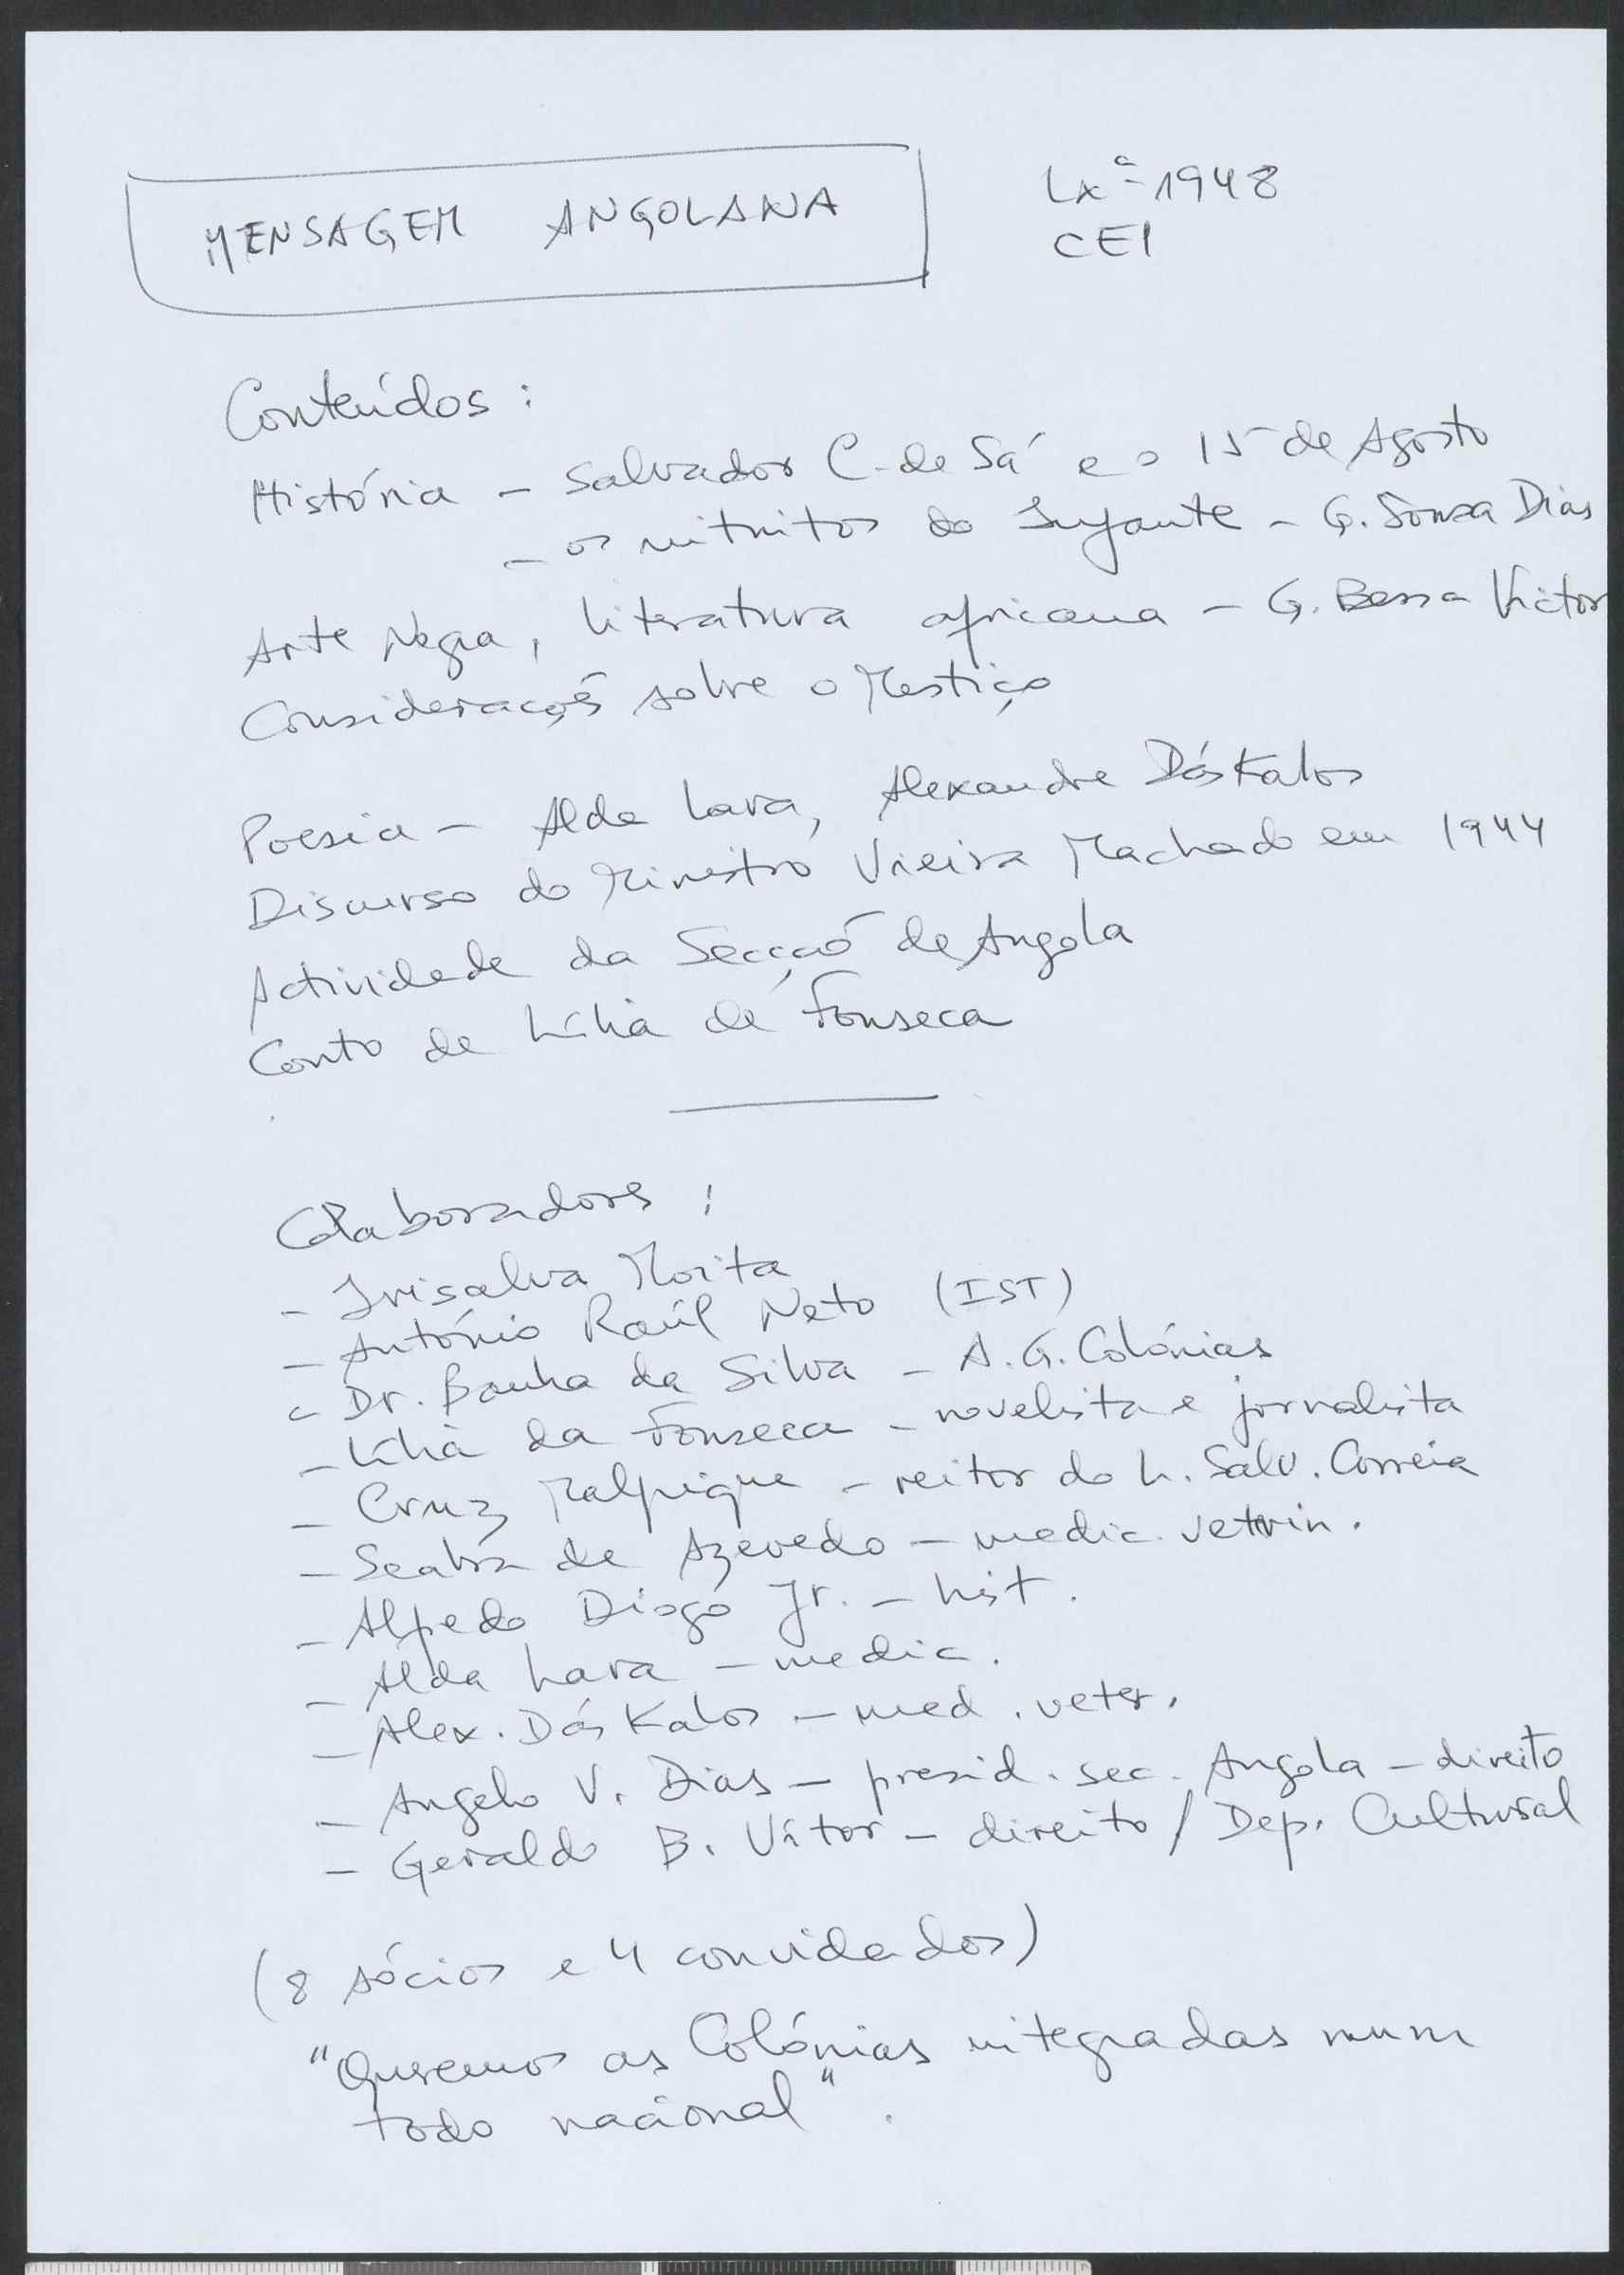 MENSAGEM ANGOLANA
Lxª-1948
CEI
Conteúdos:
História - Salvador C. de Sá e o 15 de Agosto
- os intuitos do Infante - G. Sousa Dias
Arte Negra, literatura africana - G. Bessa Victor
Considerações sobre o Mestiço
Poesia - Alda Lara, Alexandre Dáskalos
Discurso do Ministro Vieira Machado em 1944
Actividade da Secção de Angola
Conto de Lília de Fonseca
Colaboradores:
- Irisalva Moita
- António Raúl Neto (IST)
- Dr. Banha da Silva - A. G. Colónias
- Lília da Fonseca - novelista e jornalista
- Cruz Malpique - reitor do L. Salv. Correia
- Seabra de Azevedo - medic. vetrin.
- Alfredo Diogo Jr. - hist.
- Alda Lara - medic.
- Alex. Dáskalos - med. veter.
- Angelo V. Dias - presid. sec. Angola - direito
- Geraldo B. Vítor - direito / Dep. Cultural
(8 sócios e 4 convidados)
"Queremos as Colónias integradas num
todo nacional".